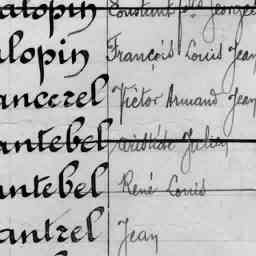 alopin Constant
alopin François Louis Jean
ancerel Victor Armand Jean
antebel Aristide Julien
antebel René Louis
antrel Jean